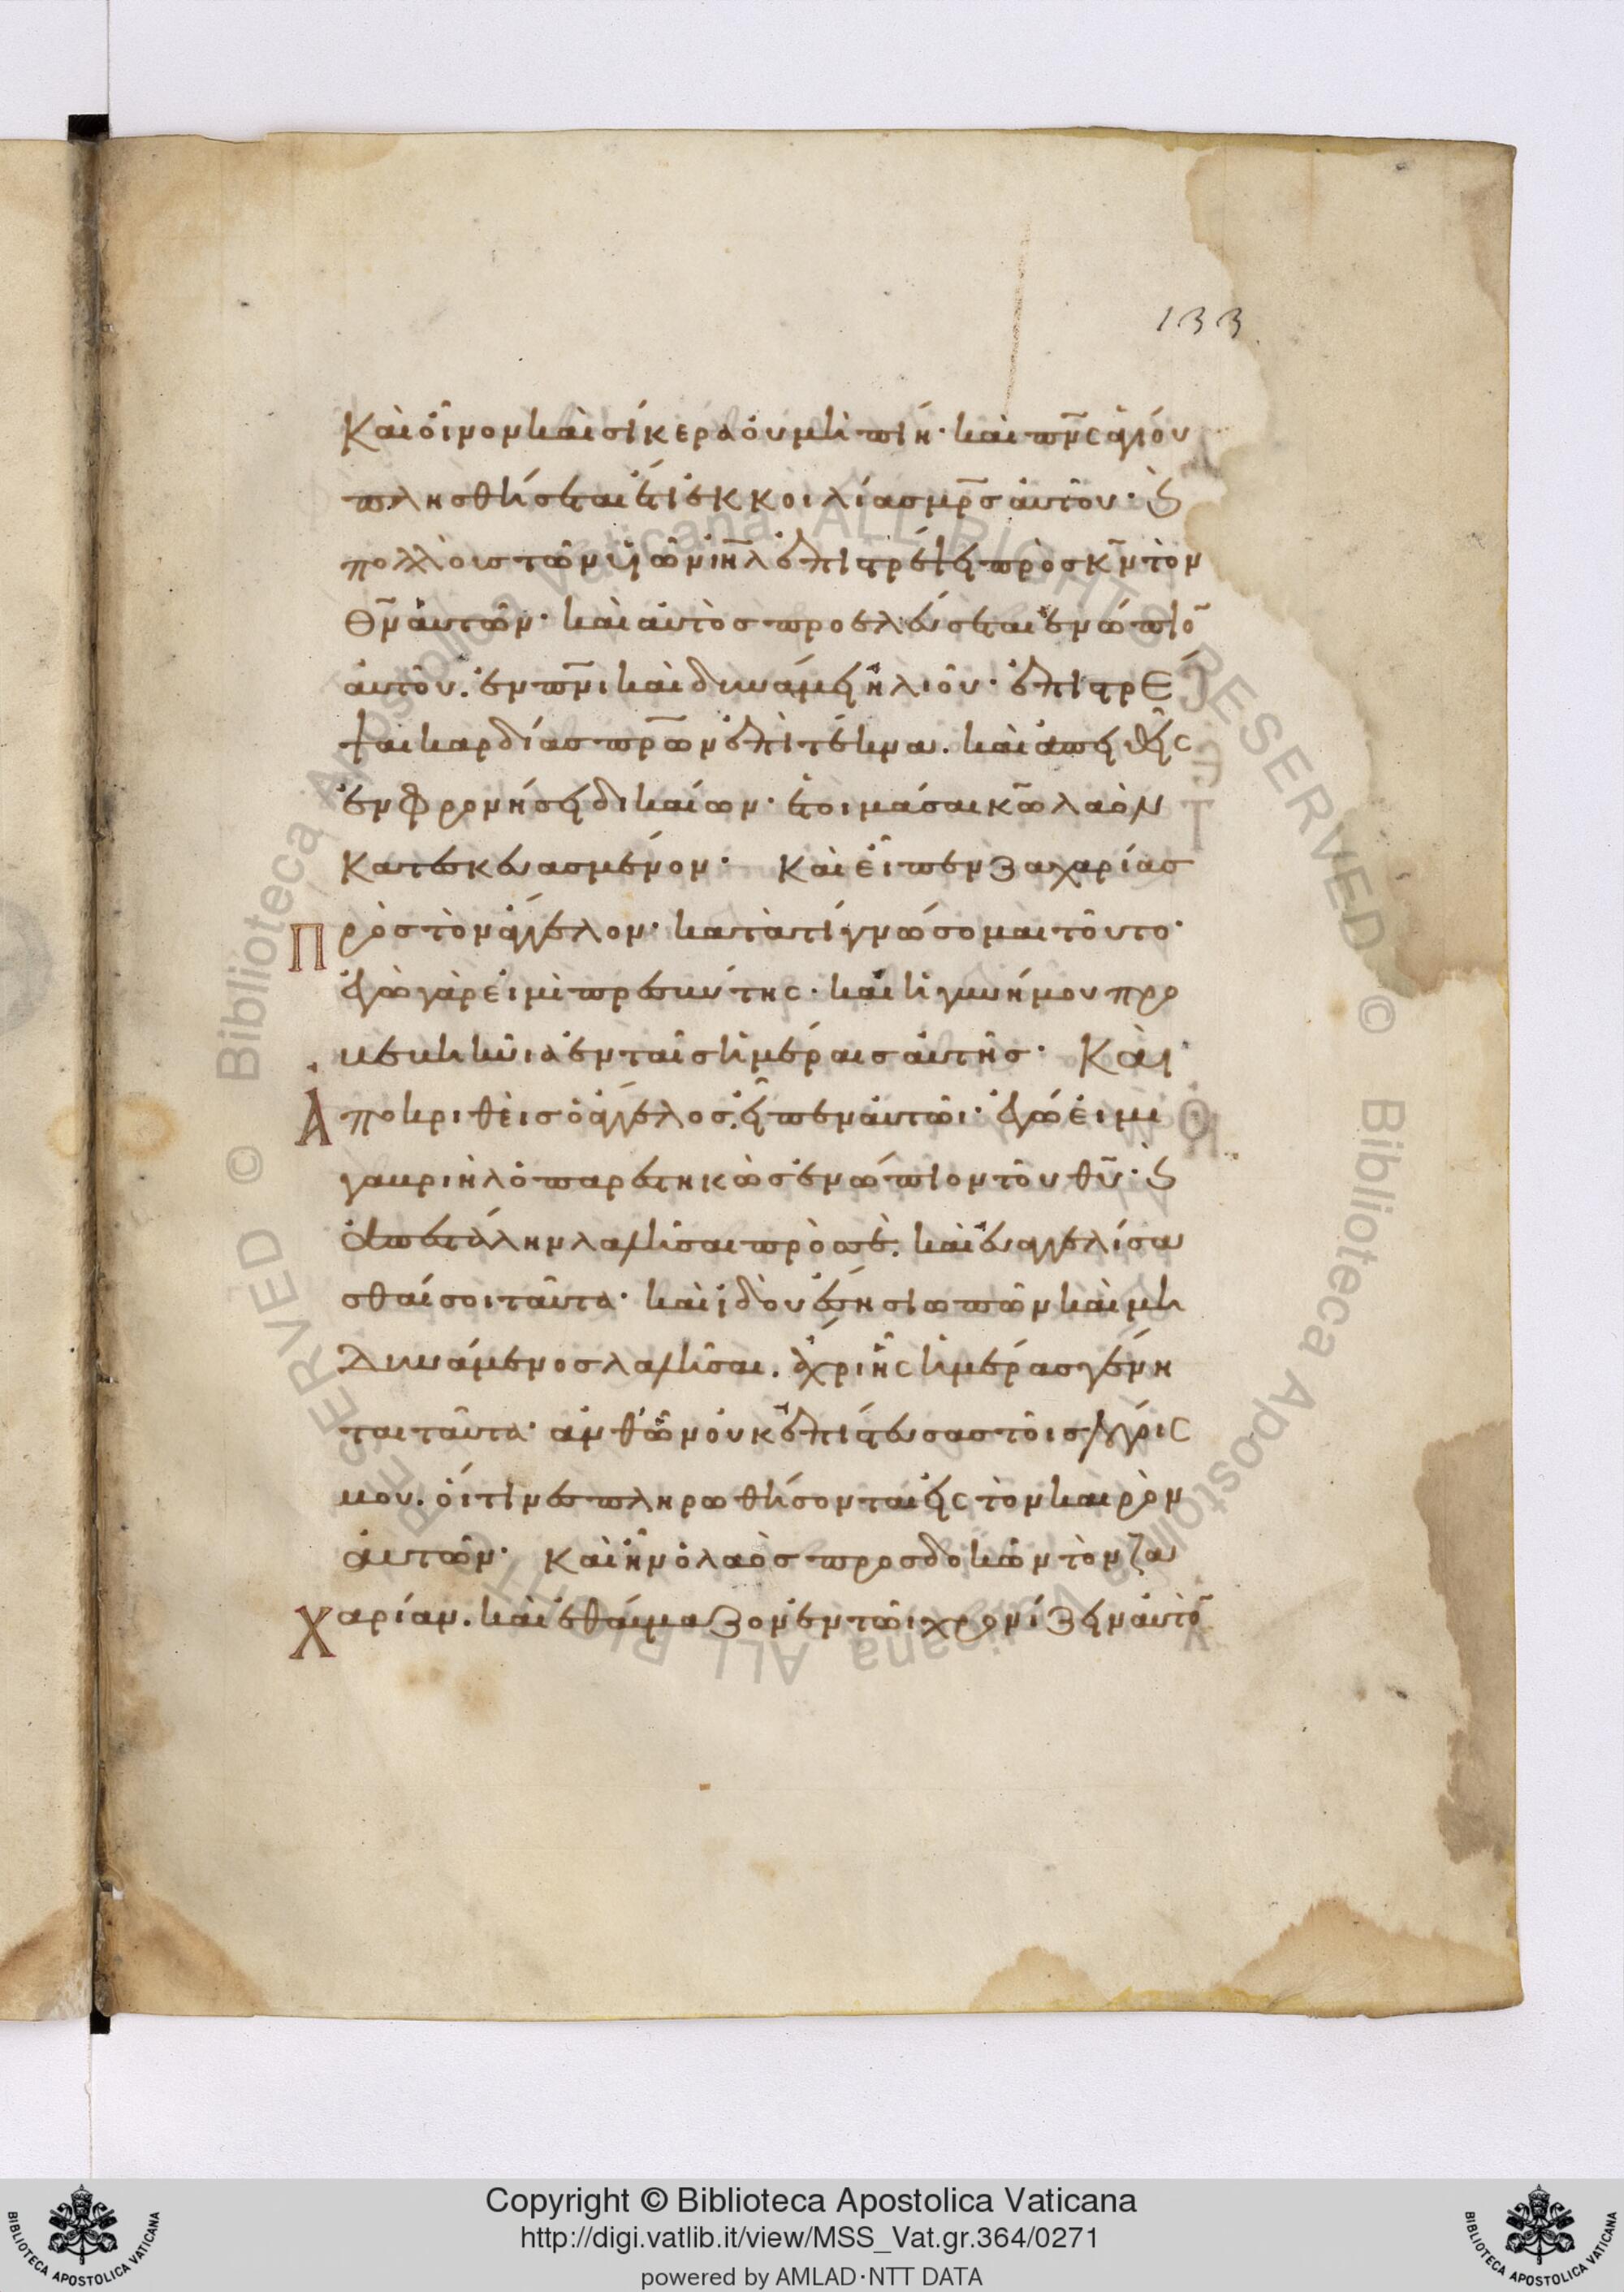 133
Καὶ οἶνον καὶ σίκερα οὐ μὴ πίη· καὶ πν̅ς ἁγίου
πλησθήσεται ἔτι ἐκ κοιλίας μρ̅ς αὐτοῦ· ϗ
πολλοὺς τῶν υἱῶν ιη̅λ ἐπιστρέψει πρὸς κ̅ν τὸν
θ̅ν αὐτῶν· καὶ αὐτὸς προελεύσεται ἐνώπιο̅
αὐτοῦ. ἐν πν̅ι καὶ δυνάμει ἠλιοῦ· ἐπιστρέ
ψαι καρδίας πρ̅ων ἐπὶ τέκνα. καὶ ἀπειθεῖς
ἐν φρονήσει δικαίων· ἑτοιμάσαι κ̅ω λαὸν
κατεσκευασμένον· Καὶ εἶπεν ζαχαρίας
Πρὸς τὸν ἄγγελον· κατὰ τί γνώσομαι τοῦτο·
ἐγὼ γάρ εἰμι πρεσβύτης· καὶ ἡ γυνή μου προ
βεβηκυῖα ἐν ταῖς ἡμέραις αὐτῆς· Καὶ
Ἀποκριθεὶς ὁ ἄγγελος εἶπεν αὐτῶι· ἐγώ εἰμι
γαβριὴλ ὁ παρεστηκὼς ἐνώπιον τοῦ θ̅υ· ϗ
ἀπεστάλην λαλῆσαι πρὸς σέ. καὶ εὐαγγελίσα
σθαί σοι ταῦτα· καὶ ἰδοὺ ἔση σιωπῶν καὶ μὴ
δυνάμενος λαλῆσαι. ἄχρι ἧς ἡμέρας γένη
ται ταῦτα· ἀνθ' ὧν οὐκ ἐπίστευσας τοῖς λόγοις
μου. οἵτινες πληρωθήσονται εἰς τὸν καιρὸν
αὐτῶν· Καὶ ἦν ὁ λαὸς προσδοκῶν τὸν ζα
Χαρίαν. καὶ ἐθαύμαζον ἐν τῶι χρονίζειν αὐτὸ̅
Copyright © Biblioteca Apostolica Vaticana
http://digi.vatlib.it/view/MSS_Vat.gr.364/0271
powered by AMLAD·NTT DATA
BIBLIOTECA APOSTOLICA VATICANA
BIBLIOTECA APOSTOLICA VATICANA
© Biblioteca Apostolica Vaticana ALL RIGHTS RESERVED
© Biblioteca Apostolica Vaticana ALL RIGHTS RESERVED